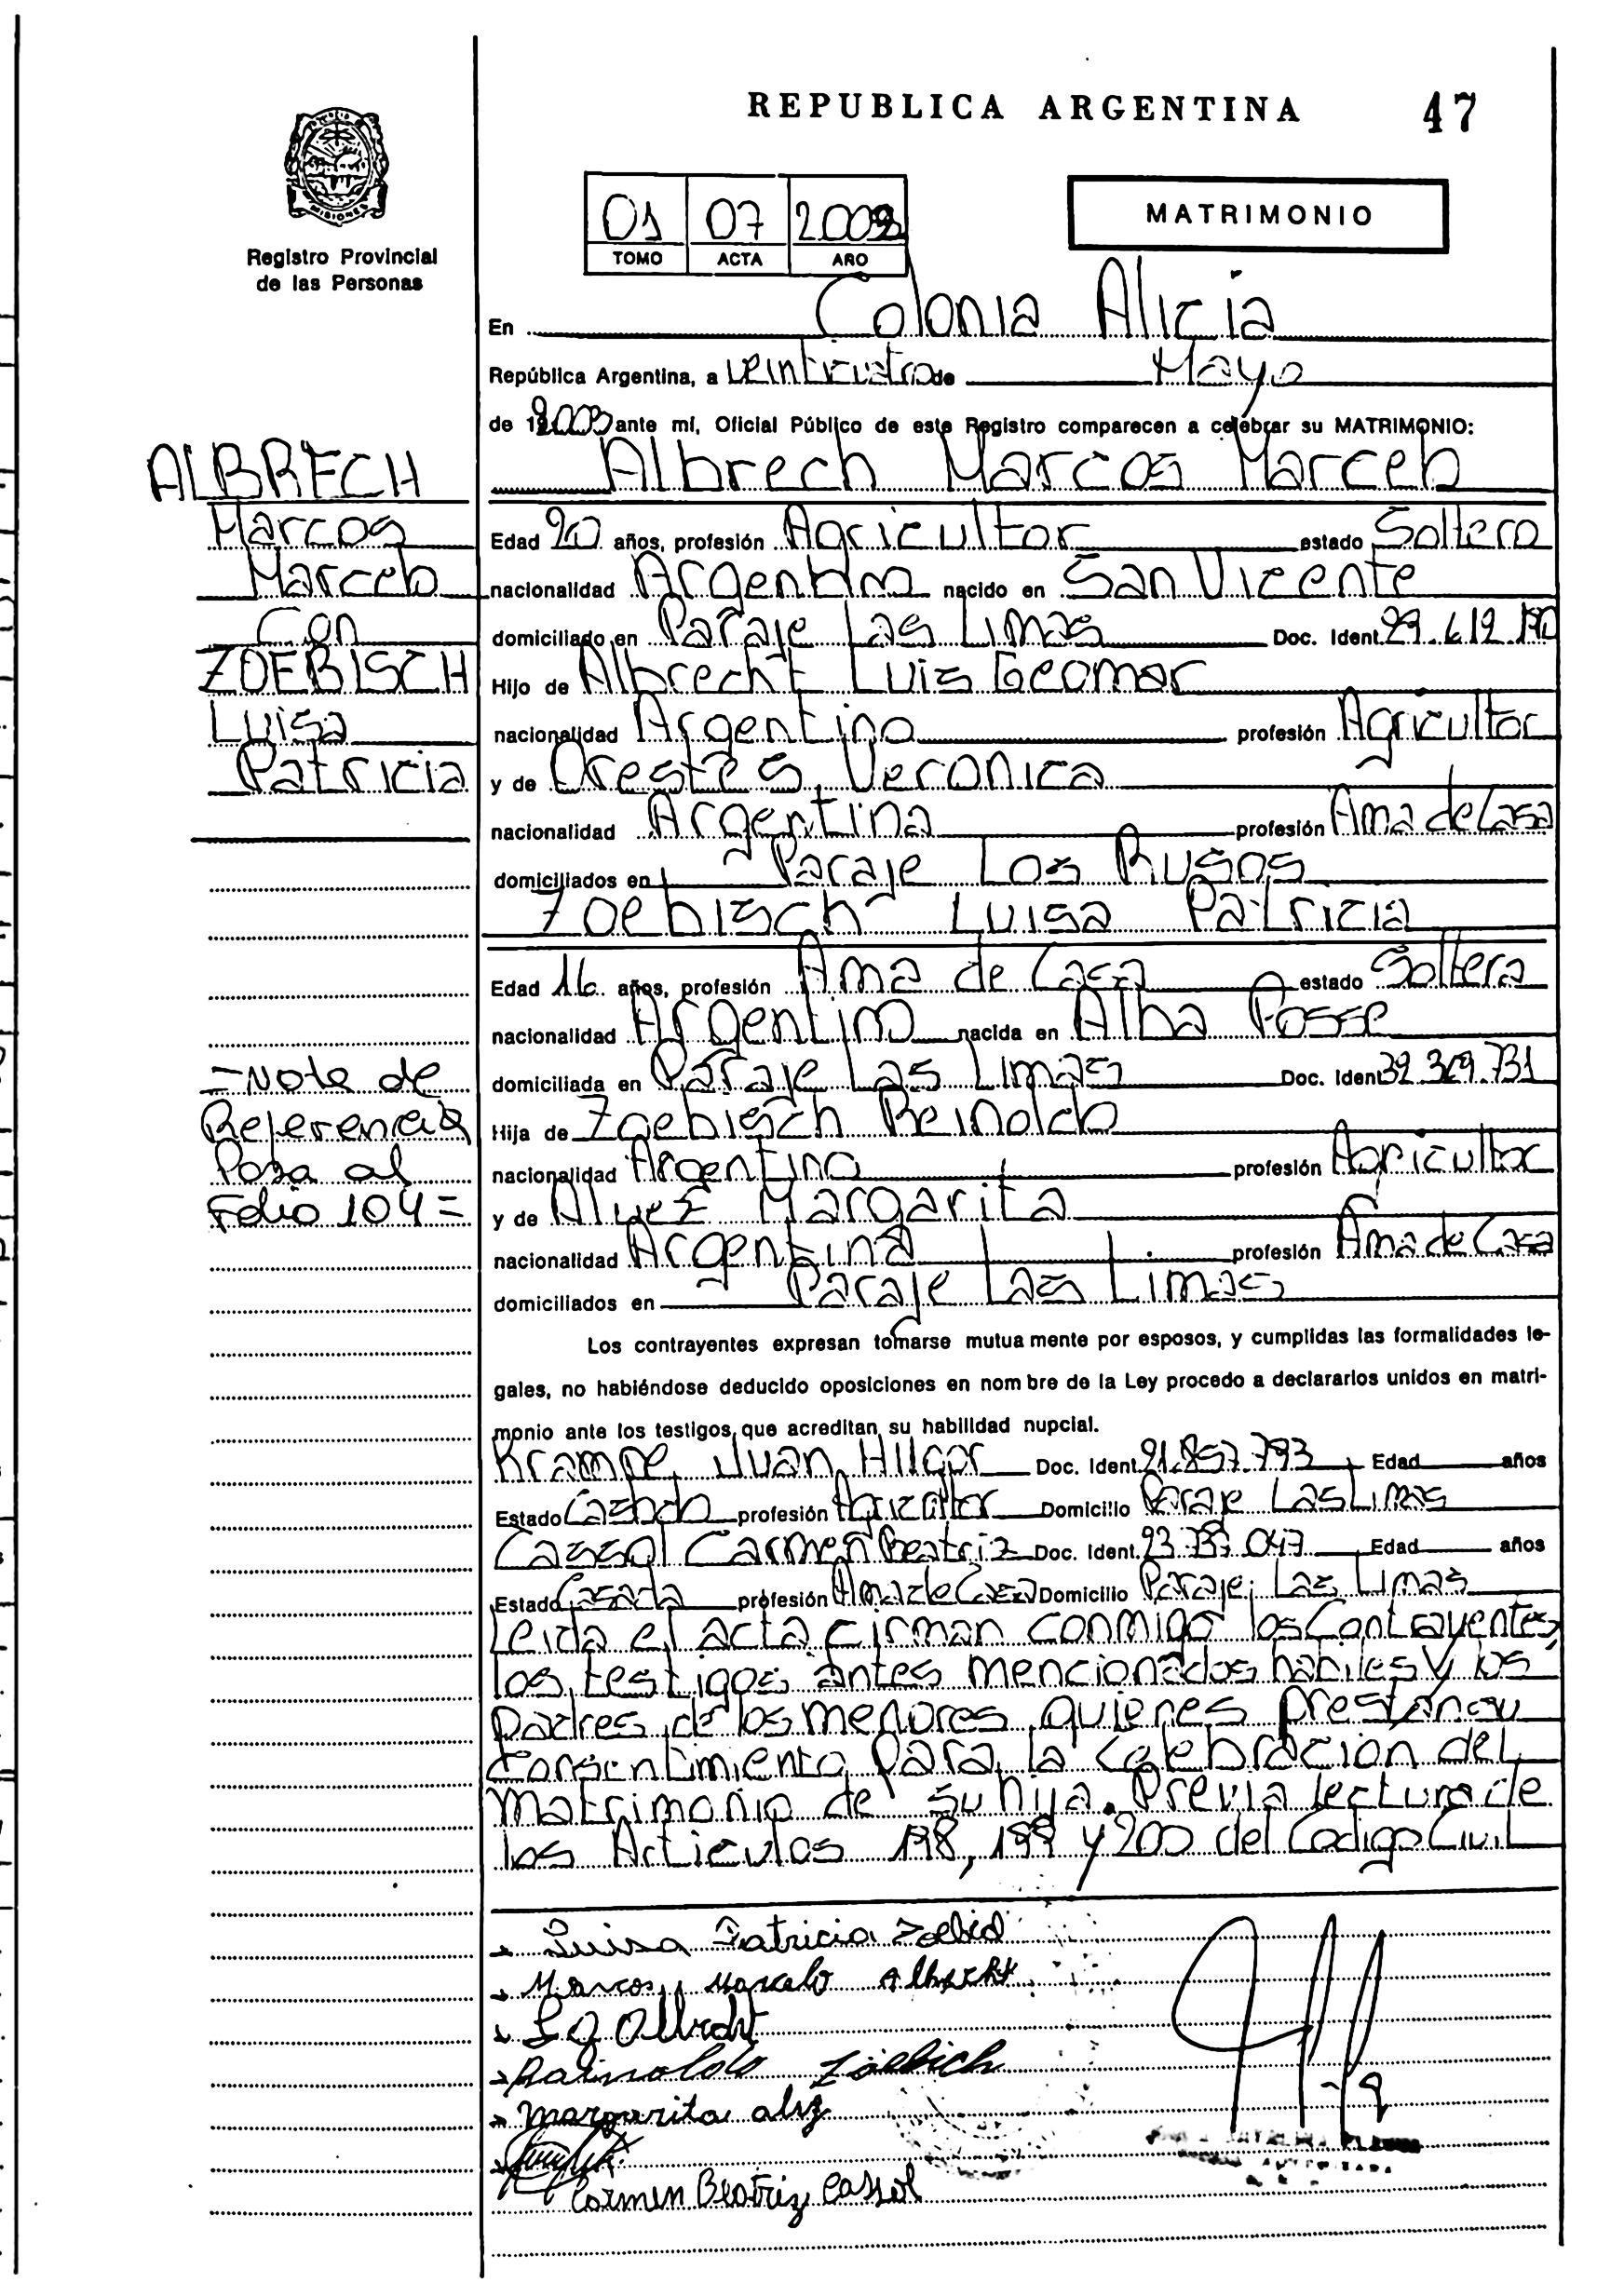 REPUBLICA ARGENTINA 47
MISIONES
Registro Provincial
de las Personas
01 07
TOMO ACTA AÑO
MATRIMONIO
En Colonia Alicia
República Argentina, a veinticuatro de Mayo
de ante mí, Oficial Público de este Registro comparecen a celebrar su MATRIMONIO:
Albrech Marcos Marcelo
ALBRECH
Marcos
Marcelo
Con
ZOEBISCH
Luisa
Patricia
Edad 20 años, profesión Agricultor estado Soltero
nacionalidad Argentino nacido en San Vicente
domiciliado en Paraje Las Limas Doc. Ident.
Hijo de Albrecht Luis Geomar
nacionalidad Argentino profesión Agricultor
y de Orestes, Veronica
nacionalidad Argentina profesión Ama de Casa
domiciliados en Paraje Los Rusos
Zoebisch Luisa Patricia
Edad 16 años, profesión Ama de Casa estado Soltera
nacionalidad Argentino nacida en Alba Posse
domiciliada en Paraje Las Limas Doc. Ident
Hija de Zoebisch Reinoldo
nacionalidad Argentino profesión Agricultor
y de Alvez Margarita
nacionalidad Argentina profesión Ama de Casa
domiciliados en Paraje Las Limas
=Nota de
Referencia
Pasa al
Folio 104=
Los contrayentes expresan tomarse mutua mente por esposos, y cumplidas las formalidades le-
gales, no habiéndose deducido oposiciones en nom bre de la Ley procedo a declararlos unidos en matri-
monio ante los testigos que acreditan su habilidad nupcial.
Krampe, Juan Hilgor Doc. Ident. 21.857.793 Edad años
Estado Casado profesión Agricultor Domicilio Paraje Las Limas
Cassol Carmen Beatriz Doc. Ident. Edad años
Estado Casada profesión Ama de Casa Domicilio Paraje Las Limas
Leida el acta firman conmigo los Contrayentes,
los testigos antes mencionados habiles y los
Padres de los menores quienes prestan su
Consentimiento para la celebracion del
matrimonio de su hija. Previa lectura de
los Articulos 198, 199 y 200 del Codigo Civil
Luisa Patricia
Marcos Marcelo Albrecht
L G Albrecht
Reinoldo Zoebich
Margarita alvz
Carmen Beatriz Cassol